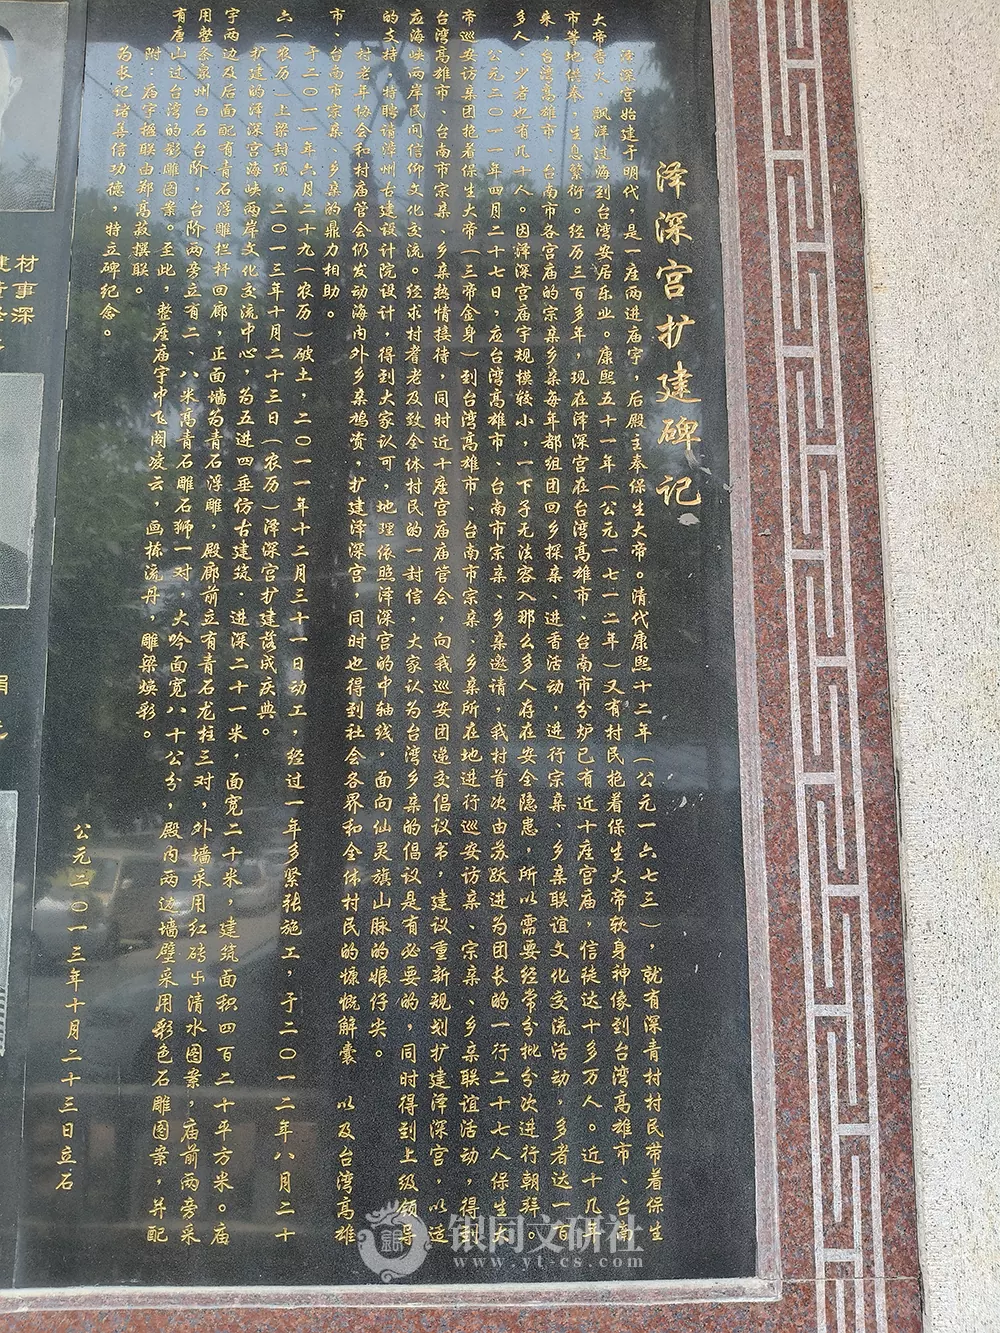 泽深宫扩建碑记
泽深宫始建于明代，是一座两进庙宇，后殿主奉保生大帝。清代康熙十二年（公元一六七三），就有深青村村民带着保生
大帝香火，飘洋过海到台湾安居乐业。康熙五十一年（公元一七一二年）又有村民抱着保生大帝软身神像到台湾高雄市、台南
市等地供奉，生息繁衍。经历三百多年，现在泽深宫在台湾高雄市、台南市分炉已有近十座宫庙，信徒达十多万人。近十几年
来，台湾高雄市、台南市各宫庙的宗亲乡亲每年都组团回乡探亲、进香活动，进行宗亲、乡亲联谊文化交流活动，多者达一百
多人，少者也有几十人。因泽深宫庙宇规模较小，一下子无法容入那么多人存在安全隐患，所以需要经常分批分次进行朝拜。
公元二〇一一年四月二十七日，应台湾高雄市、台南市宗亲、乡亲邀请，我村首次由苏跃进为团长的一行二十七人保生大
帝巡安访亲团抱着保生大帝（三帝金身）到台湾高雄市、台南市宗亲、乡亲所在地进行巡安访亲、宗亲、乡亲联谊活动，得到
台湾高雄市、台南市宗亲、乡亲热情接待，同时近十座宫庙庙管会，向我巡安团递交倡议书，建议重新规划扩建泽深宫，以适
应海峡两岸民间信仰文化交流。经求村耆老及致全体村民的一封信，大家认为台湾乡亲的倡议是有必要的，同时得到上级领导
的支持，特聘请漳州古建设计院设计，得到大家认可，地理依照泽深宫的中轴线，面向仙灵旗山脉的娘仔尖。
村老年协会和村庙管会仍发动海内外乡亲鸠资，扩建泽深宫，同时也得到社会各界和全体村民的慷慨解囊 以及台湾高雄
市、台南市宗亲、乡亲的鼎力相助。
于二〇一一年六月二十九（农历）破土，二〇一一年十二月三十一日动工，经过一年多紧张施工，于二〇一二年八月二十
六（农历）上梁封顶。二〇一三年十月二十三日（农历）泽深宫扩建落成庆典。
扩建的泽深宫海峡两岸文化交流中心，为五进四垂仿古建筑、进深二十一米，面宽二十米，建筑面积四百二十平方米。庙
宇两边及后面配有青石浮雕栏杆回廊，正面墙为青石浮雕，殿廊前立有青石龙柱三对，外墙采用红砖乐清水图案，庙前两旁采
用整条泉州白石台阶，台阶两旁立有二、八米高青石雕石狮一对，大吟面宽八十公分，殿内两边墙壁采用彩色石雕图案，并配
有唐山过台湾的影雕图案。至此，整座庙宇中飞阁凌云，画栋流丹，雕梁焕彩。
附：庙宇楹联由郑高菽撰联。
为长纪诸善信功德，特立碑纪念。
公元二〇一三年十月二十三日立石
银同文研社
www.yt-cs.com